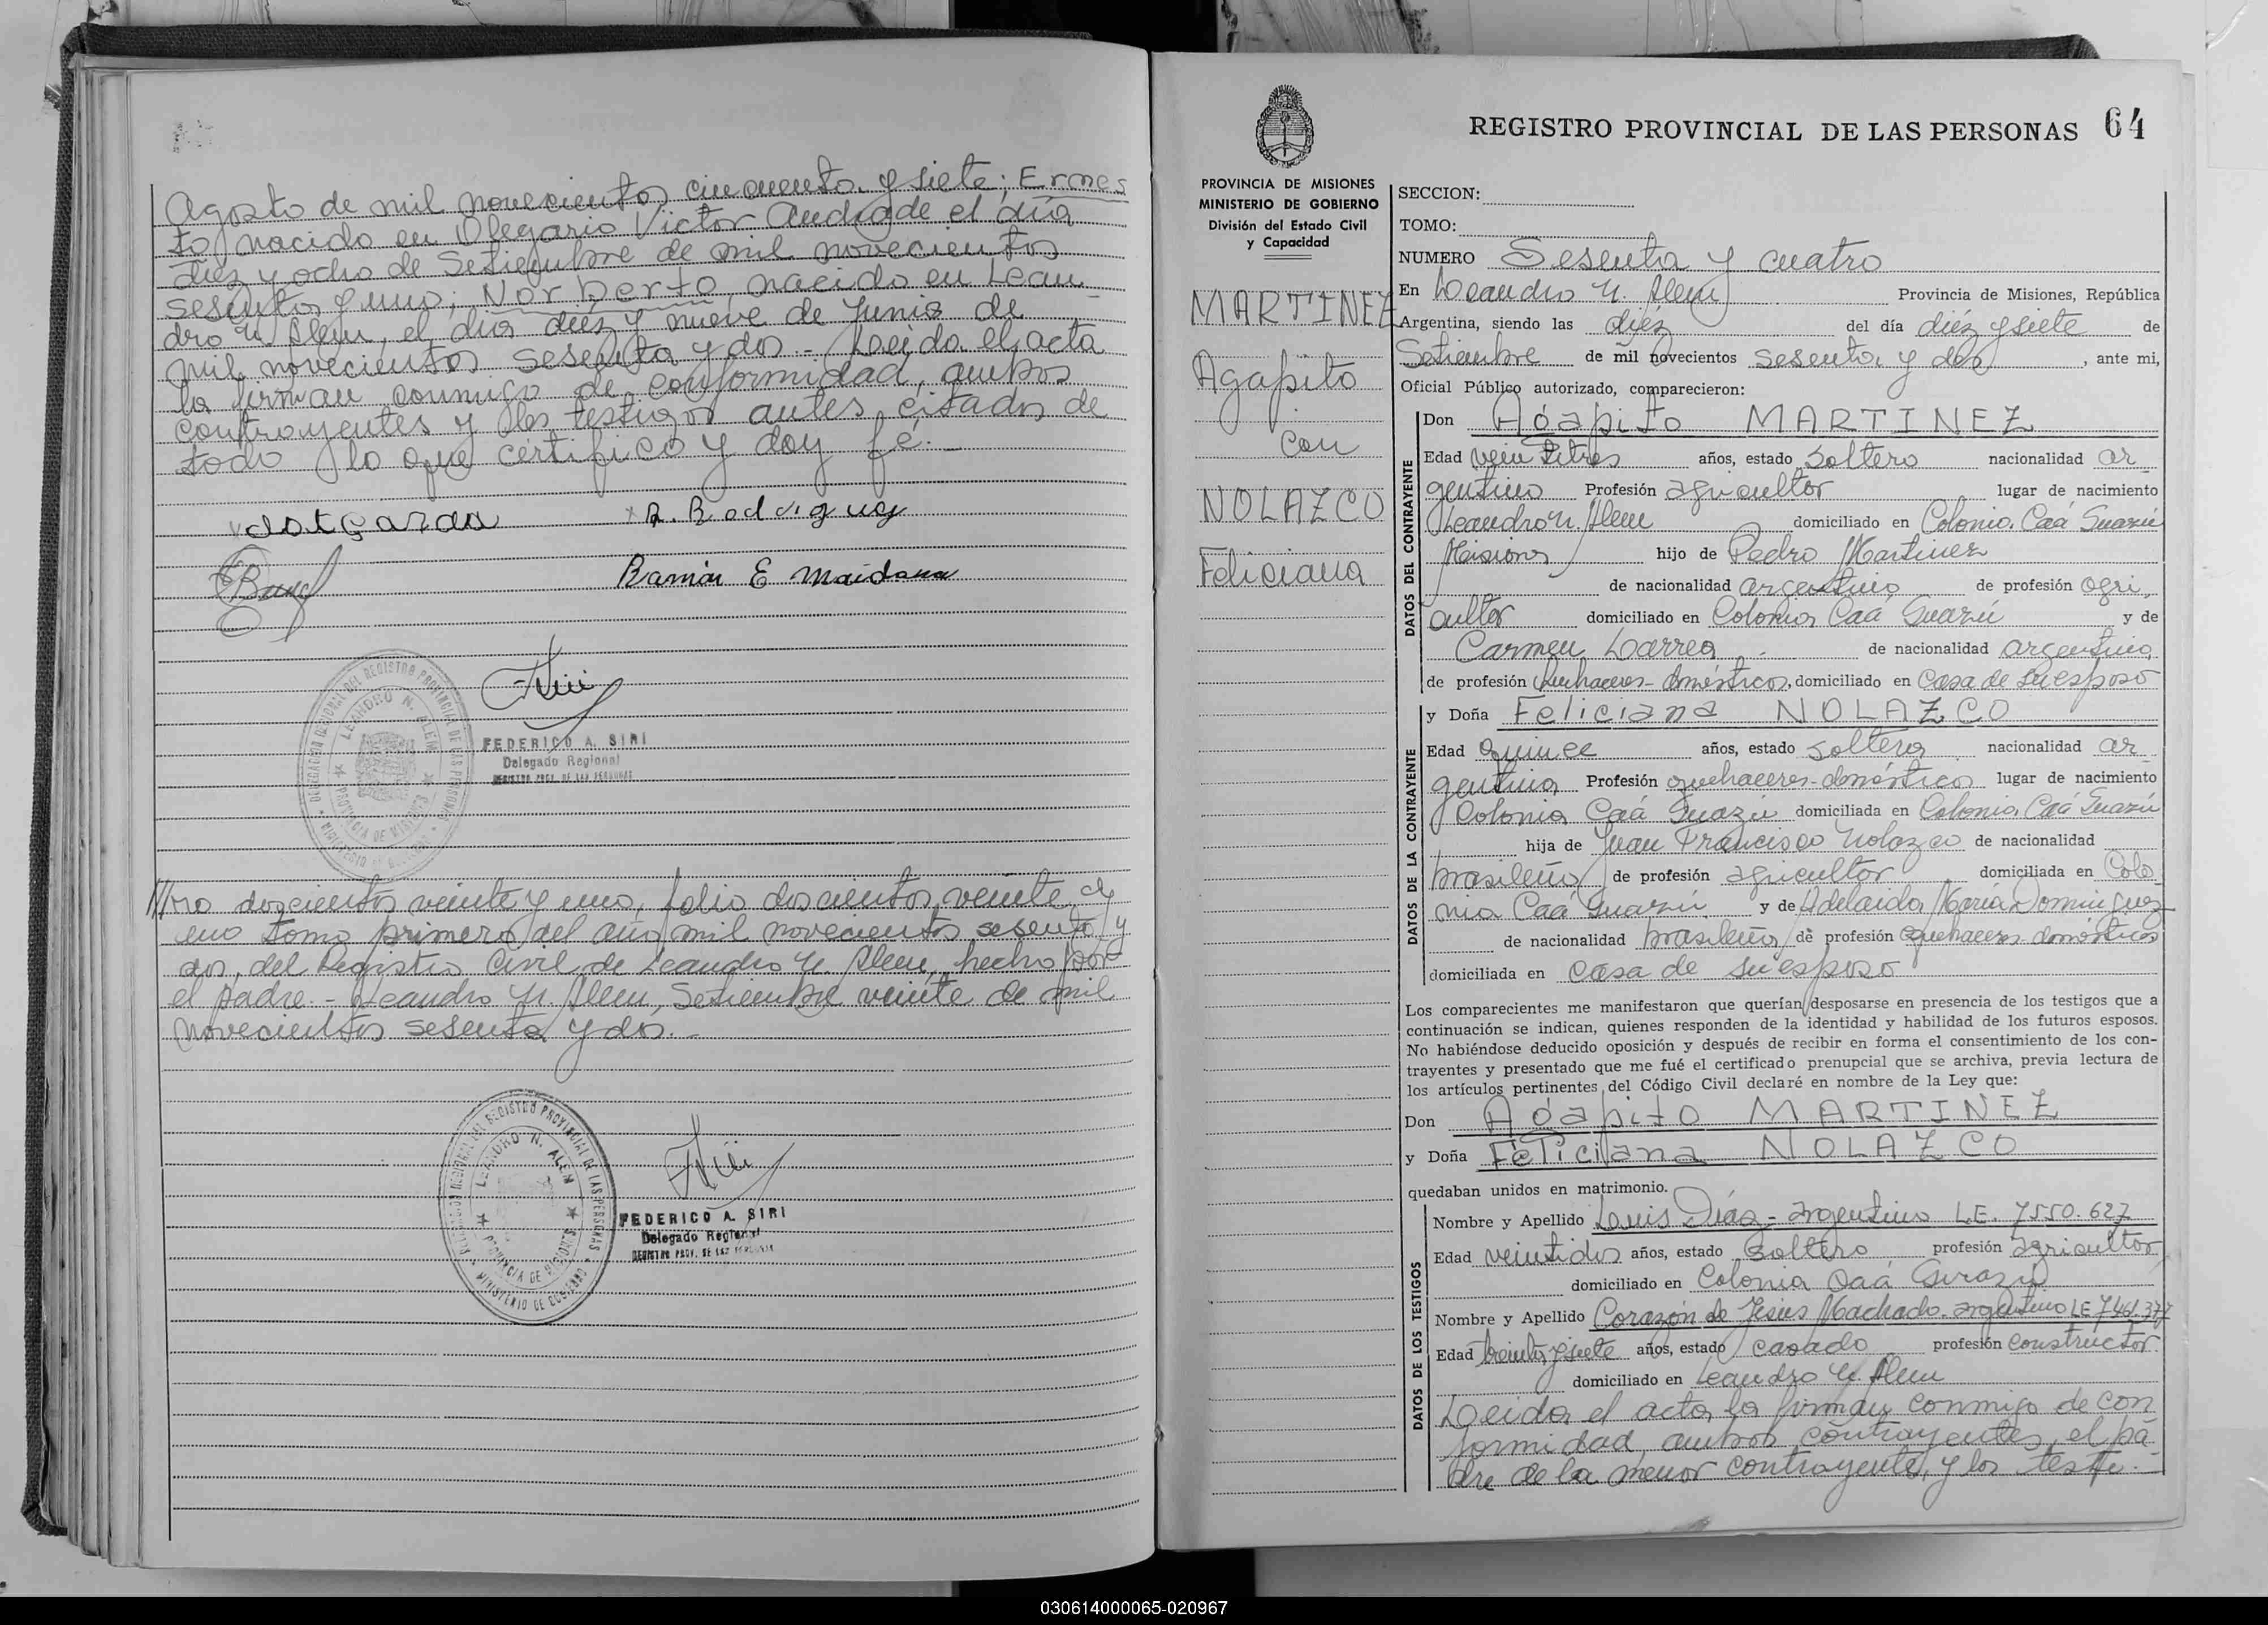 Agosto de mil novecientos cincuenta y siete; Ernes
to, nacido en Olegario Victor Andrade el día
diez y ocho de Setiembre de mil novecientos
sesenta y uno; Norberto, nacido en Lean
dro N. Alem, el día diez y nueve de Junio de
mil novecientos sesenta y dos.- Leida el acta
la firman conmigo de conformidad, ambos
contrayentes y los testigos antes citados de
todo lo que certifico y doy fé.-
R. Rodriguez
Ramón E Maidana
DELEGACION REGIONAL DEL REGISTRO PROVINCIAL DE LAS PERSONAS
LEANDRO N. ALEM
PROVINCIA DE MISIONES
MINISTERIO DE GOBIERNO
FEDERICO A. SIRI
Delegado Regional
REGISTRO PROV. DE LAS PERSONAS
///ro doscientos veinte y uno, folio doscientos veinte y
uno tomo primero del año mil novecientos sesenta y
dos, del Registro Civil de Leandro N. Alem, hecho por
el padre.- Leandro N. Alem, Setiembre veinte de mil
novecientos sesenta y dos.-
DELEGACION REGIONAL DEL REGISTRO PROVINCIAL DE LAS PERSONAS
LEANDRO N. ALEM
PROVINCIA DE MISIONES
MINISTERIO DE GOBIERNO
FEDERICO A. SIRI
Delegado Regional
REGISTRO PROV. DE LAS PERSONAS
REGISTRO PROVINCIAL DE LAS PERSONAS 64
PROVINCIA DE MISIONES
MINISTERIO DE GOBIERNO
División del Estado Civil
y Capacidad
MARTINEZ
Agapito
con
NOLAZCO
Feliciana
SECCION:
TOMO:
NUMERO Sesenta y cuatro
En Leandro N. Alem Provincia de Misiones, República
Argentina, siendo las diéz del día diéz y siete de
Setiembre de mil novecientos sesenta y dos, ante mi,
Oficial Público autorizado, comparecieron:
DATOS DEL CONTRAYENTE
Don Agapito MARTINEZ
Edad veintitres años, estado soltero nacionalidad ar
gentino Profesión agricultor lugar de nacimiento
Leandro N. Alem domiciliado en Colonia Caá Guazú
Misiones hijo de Pedro Martinez
de nacionalidad argentino de profesión agri
cultor domiciliado en Colonia Caá Guazú y de
Carmen Larrea de nacionalidad argentina
de profesión quehaceres-domésticos, domiciliado en casa de su esposo
DATOS DE LA CONTRAYENTE
y Doña Feliciana NOLAZCO
Edad quince años, estado soltera nacionalidad ar
gentina Profesión quehaceres-domésticos lugar de nacimiento
Colonia Caá Guazú domiciliada en Colonia Caá Guazú
hija de Juan Francisco Nolazco de nacionalidad
brasileño de profesión agricultor domiciliada en Colo
nia Caá Guazú y de Adelaida María Dominguez
de nacionalidad brasileña de profesión quehaceres domésticos
domiciliada en casa de su esposo
Los comparecientes me manifestaron que querían desposarse en presencia de los testigos que a
continuación se indican, quienes responden de la identidad y habilidad de los futuros esposos.
No habiéndose deducido oposición y después de recibir en forma el consentimiento de los con-
trayentes y presentado que me fué el certificado prenupcial que se archiva, previa lectura de
los artículos pertinentes del Código Civil declaré en nombre de la Ley que:
Don Agapito MARTINEZ
y Doña Feliciana NOLAZCO
quedaban unidos en matrimonio.
DATOS DE LOS TESTIGOS
Nombre y Apellido Luis Diáz - argentino L.E. 7550.627
Edad veintidos años, estado soltero profesión agricultor
domiciliado en Colonia Caá Guazú
Nombre y Apellido Corazón de Jesús Machado. argentino LE 7.461.377
Edad treinta y siete años, estado casado profesión constructor.
domiciliado en Leandro N. Alem
Leida el acta, la firman conmigo de con
formidad, ambos contrayentes, el pa-
dre de la menor contrayente, y los testi-
030614000065-020967